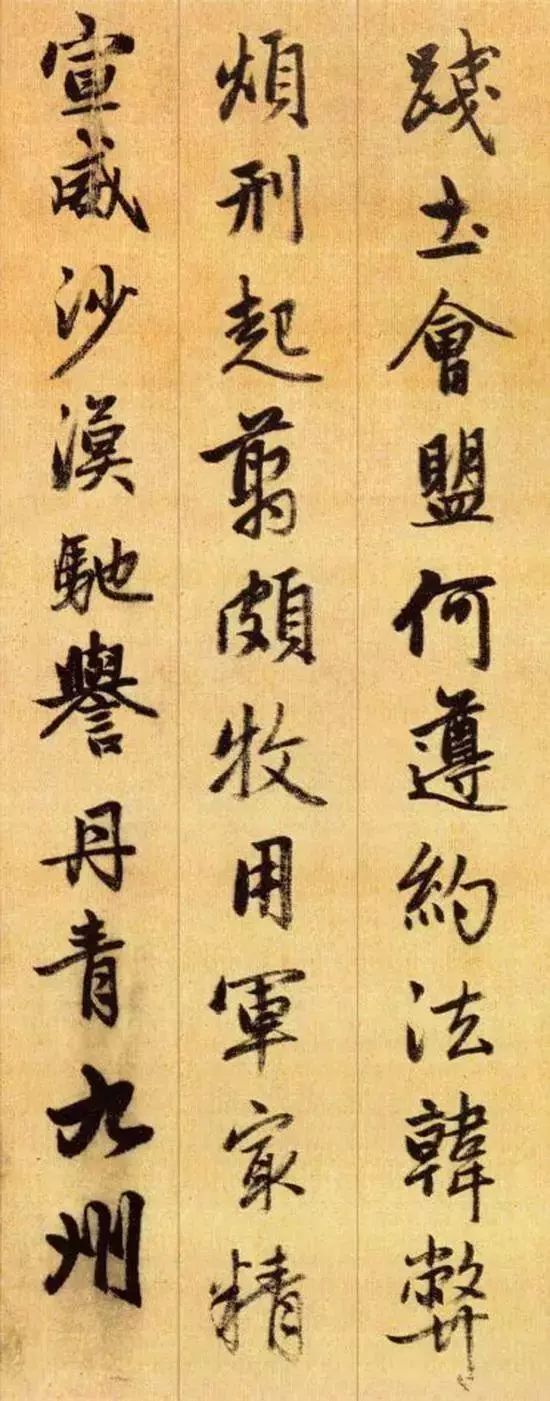 踐土會盟何遵約法韓弊
煩刑起翦頗牧用軍冣精
宣威沙漠馳譽丹青九州